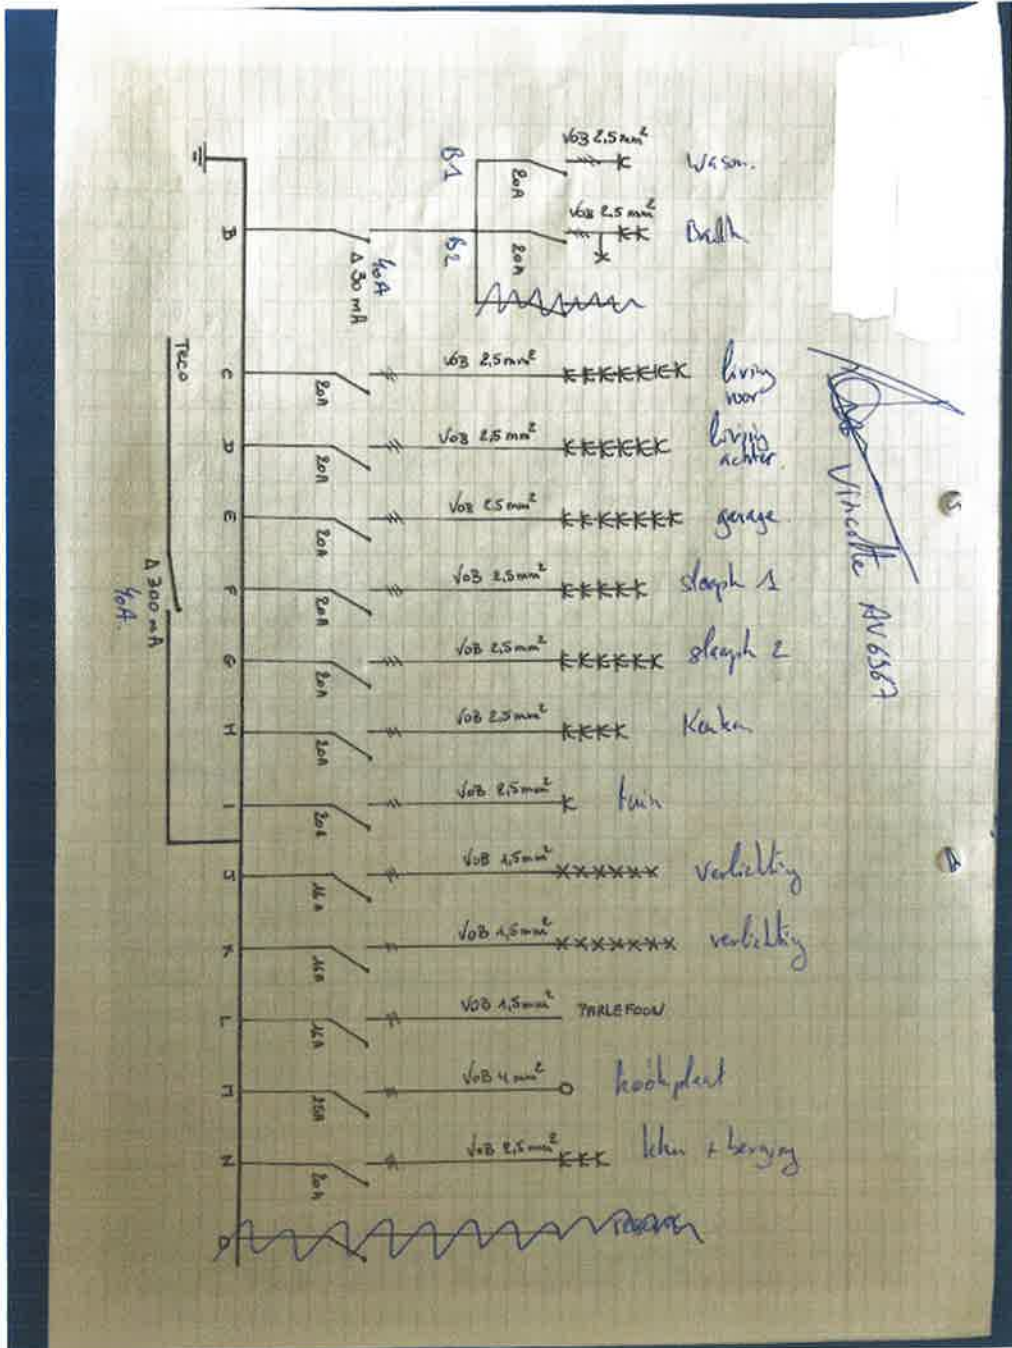 B1
20A
VOB 2,5 mm²
Wasm.
B
40A
Δ 30 mA
B2
20A
VOB 2,5 mm²
Teco
Δ 300 mA
40A.
C
20A
VOB 2,5mm²
living
voor
D
20A
VOB 2,5 mm²
living
achter.
E
20A
VOB 2,5mm²
garage
F
20A
VOB 2,5mm²
slaapk 1
G
20A
VOB 2,5mm²
slaapk 2
H
20A
VOB 2,5mm²
Keuken
I
20A
VOB 2,5mm²
tuin
J
16A
VOB 1,5mm²
verlichting
K
16A
VOB 1,5mm²
verlichting
L
16A
VOB 1,5mm²
PARLEFOON
25A
VOB 4 mm²
kookplaat
N
20A
VOB 2,5mm²
+ berging
Vincotte AV6367